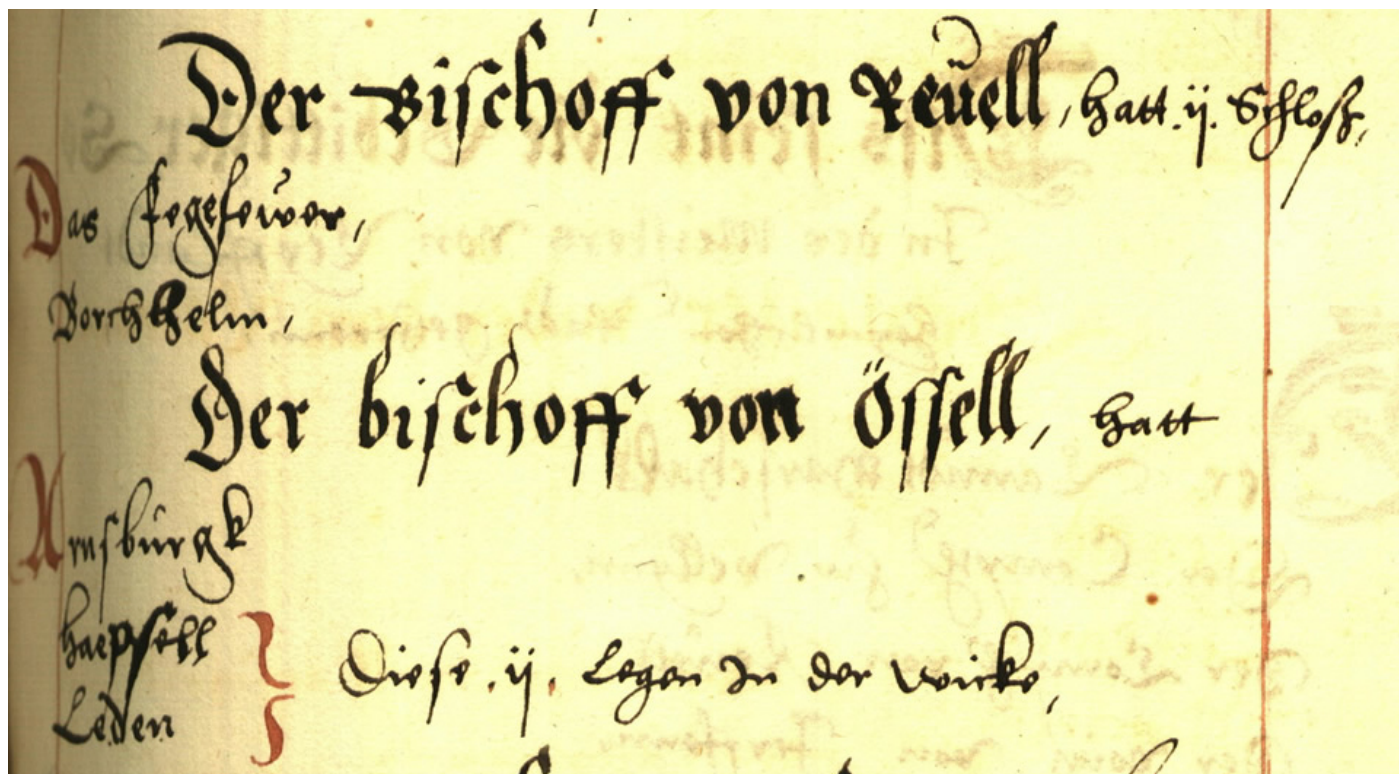 Der Bischoff von Reuell, hatt .ij. Schloß,
Das Fegefewer,
Borchholm,
Der bischoff von Össell, hatt
Arnsburgk
hapsell
Leden
Diese .ij. Legen In der wicke,